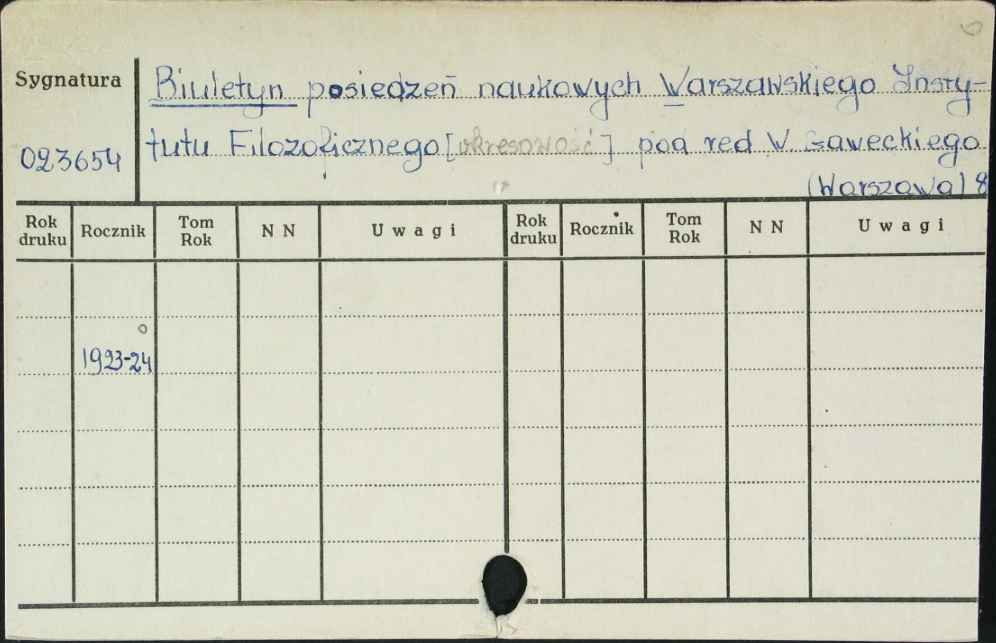 Sygnatura
Biuletyn posiedzeń naukowych Warszawskiego Insty-
023654
tutu Filozoficznego [okresowość] pod red W Gaweckiego
(Warszawa) 8
Rok druku Rocznik Tom Rok N N Uwagi Rok druku Rocznik Tom Rok N N Uwagi
1923-24